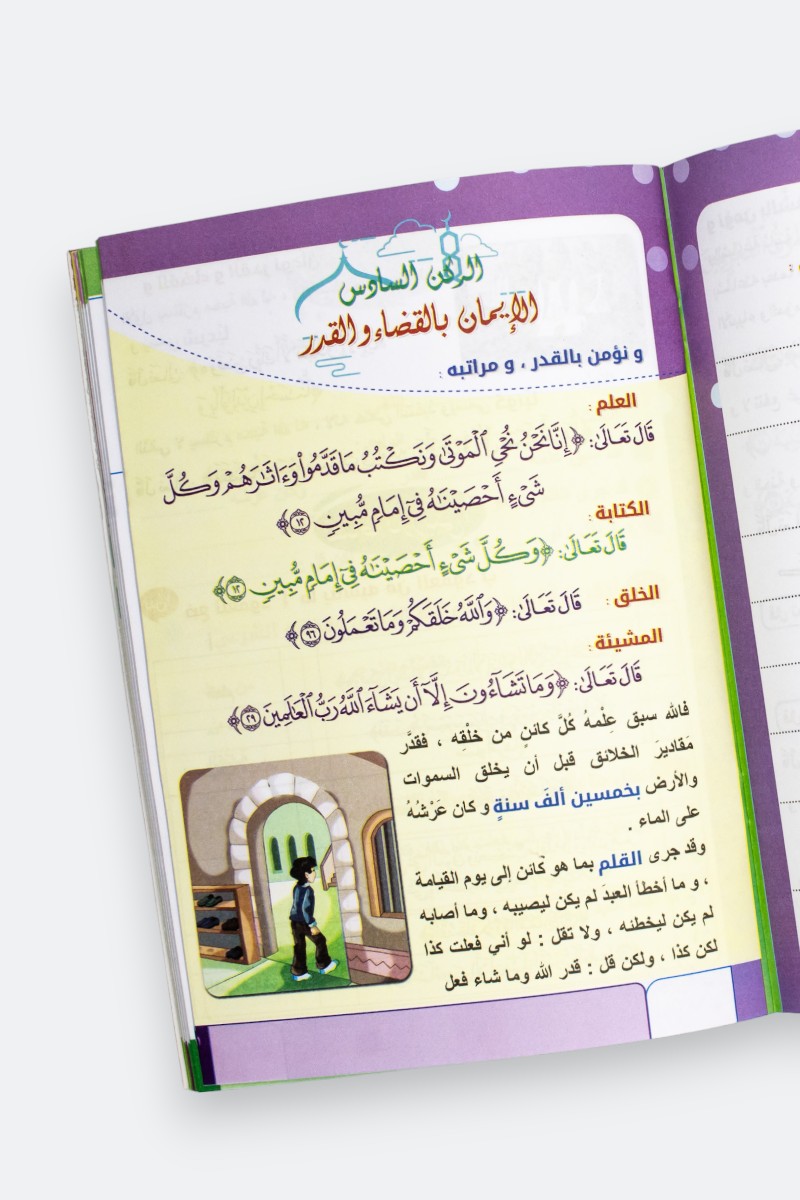 الركن السادس
الإيمان بالقضاء و القدر
و نؤمن بالقدر ، و مراتبه :
العلم :
قَالَ تَعَالَىٰ: ﴿إِنَّا نَحْنُ نُحْىِ ٱلْمَوْتَىٰ وَنَكْتُبُ مَا قَدَّمُوا۟ وَءَاثَٰرَهُمْ وَكُلَّ
شَىْءٍ أَحْصَيْنَٰهُ فِىٓ إِمَامٍ مُّبِينٍ ۝١٢﴾
الكتابة :
قَالَ تَعَالَىٰ: ﴿وَكُلَّ شَىْءٍ أَحْصَيْنَٰهُ فِىٓ إِمَامٍ مُّبِينٍ ۝١٢﴾
الخلق : قَالَ تَعَالَىٰ: ﴿وَٱللَّهُ خَلَقَكُمْ وَمَا تَعْمَلُونَ ۝٩٦﴾
المشيئة :
قَالَ تَعَالَىٰ: ﴿وَمَا تَشَآءُونَ إِلَّآ أَن يَشَآءَ ٱللَّهُ رَبُّ ٱلْعَٰلَمِينَ ۝٢٩﴾
فالله سبق عِلْمهُ كُلَّ كائنٍ من خلْقِه ، فقدَّر
مَقاديرَ الخلائق قبل أن يخلق السموات
والأرض بخمسين ألفَ سنةٍ و كان عَرْشُهُ
على الماء .
وقد جرى القلم بما هو كائن إلى يوم القيامة
، و ما أخطأ العبدَ لم يكن ليصيبه ، وما أصابه
لم يكن ليخطئه ، ولا تقل : لو أني فعلت كذا
لكن كذا ، ولكن قل : قدر الله وما شاء فعل